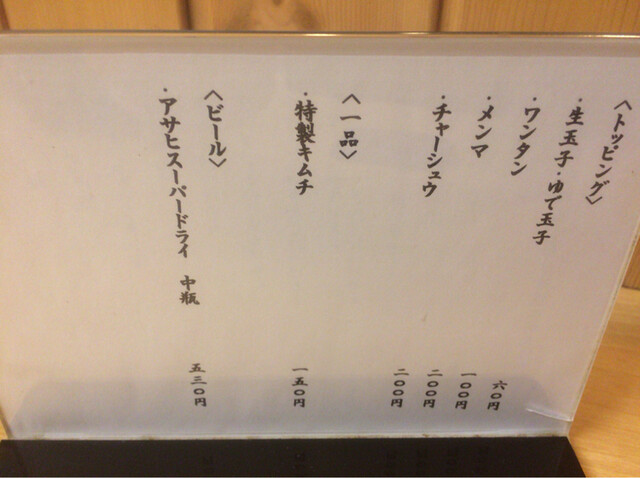 〈トッピング〉
・生玉子・ゆで玉子 六〇円
・ワンタン 一〇〇円
・メンマ 二〇〇円
・チャーシュウ 二〇〇円
〈一品〉
・特製キムチ 一五〇円
〈ビール〉
・アサヒスーパードライ 中瓶 五三〇円